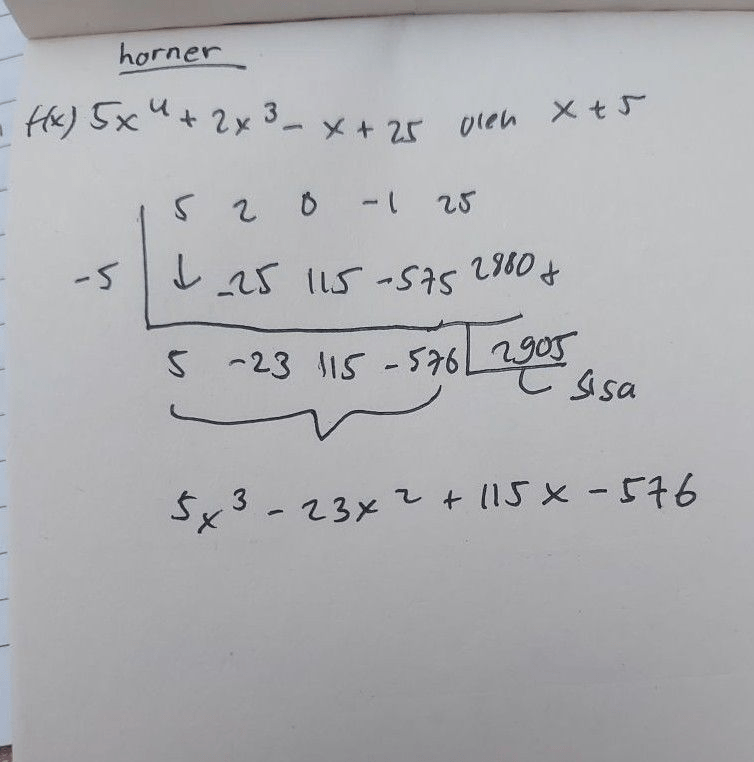 horner
f(x) 5x⁴ + 2x³ - x + 25 oleh x + 5
5 2 0 -1 25
-5 ↓ -25 115 -575 2880 +
5 -23 115 -576 2905
sisa
5x³ - 23x² + 115x - 576